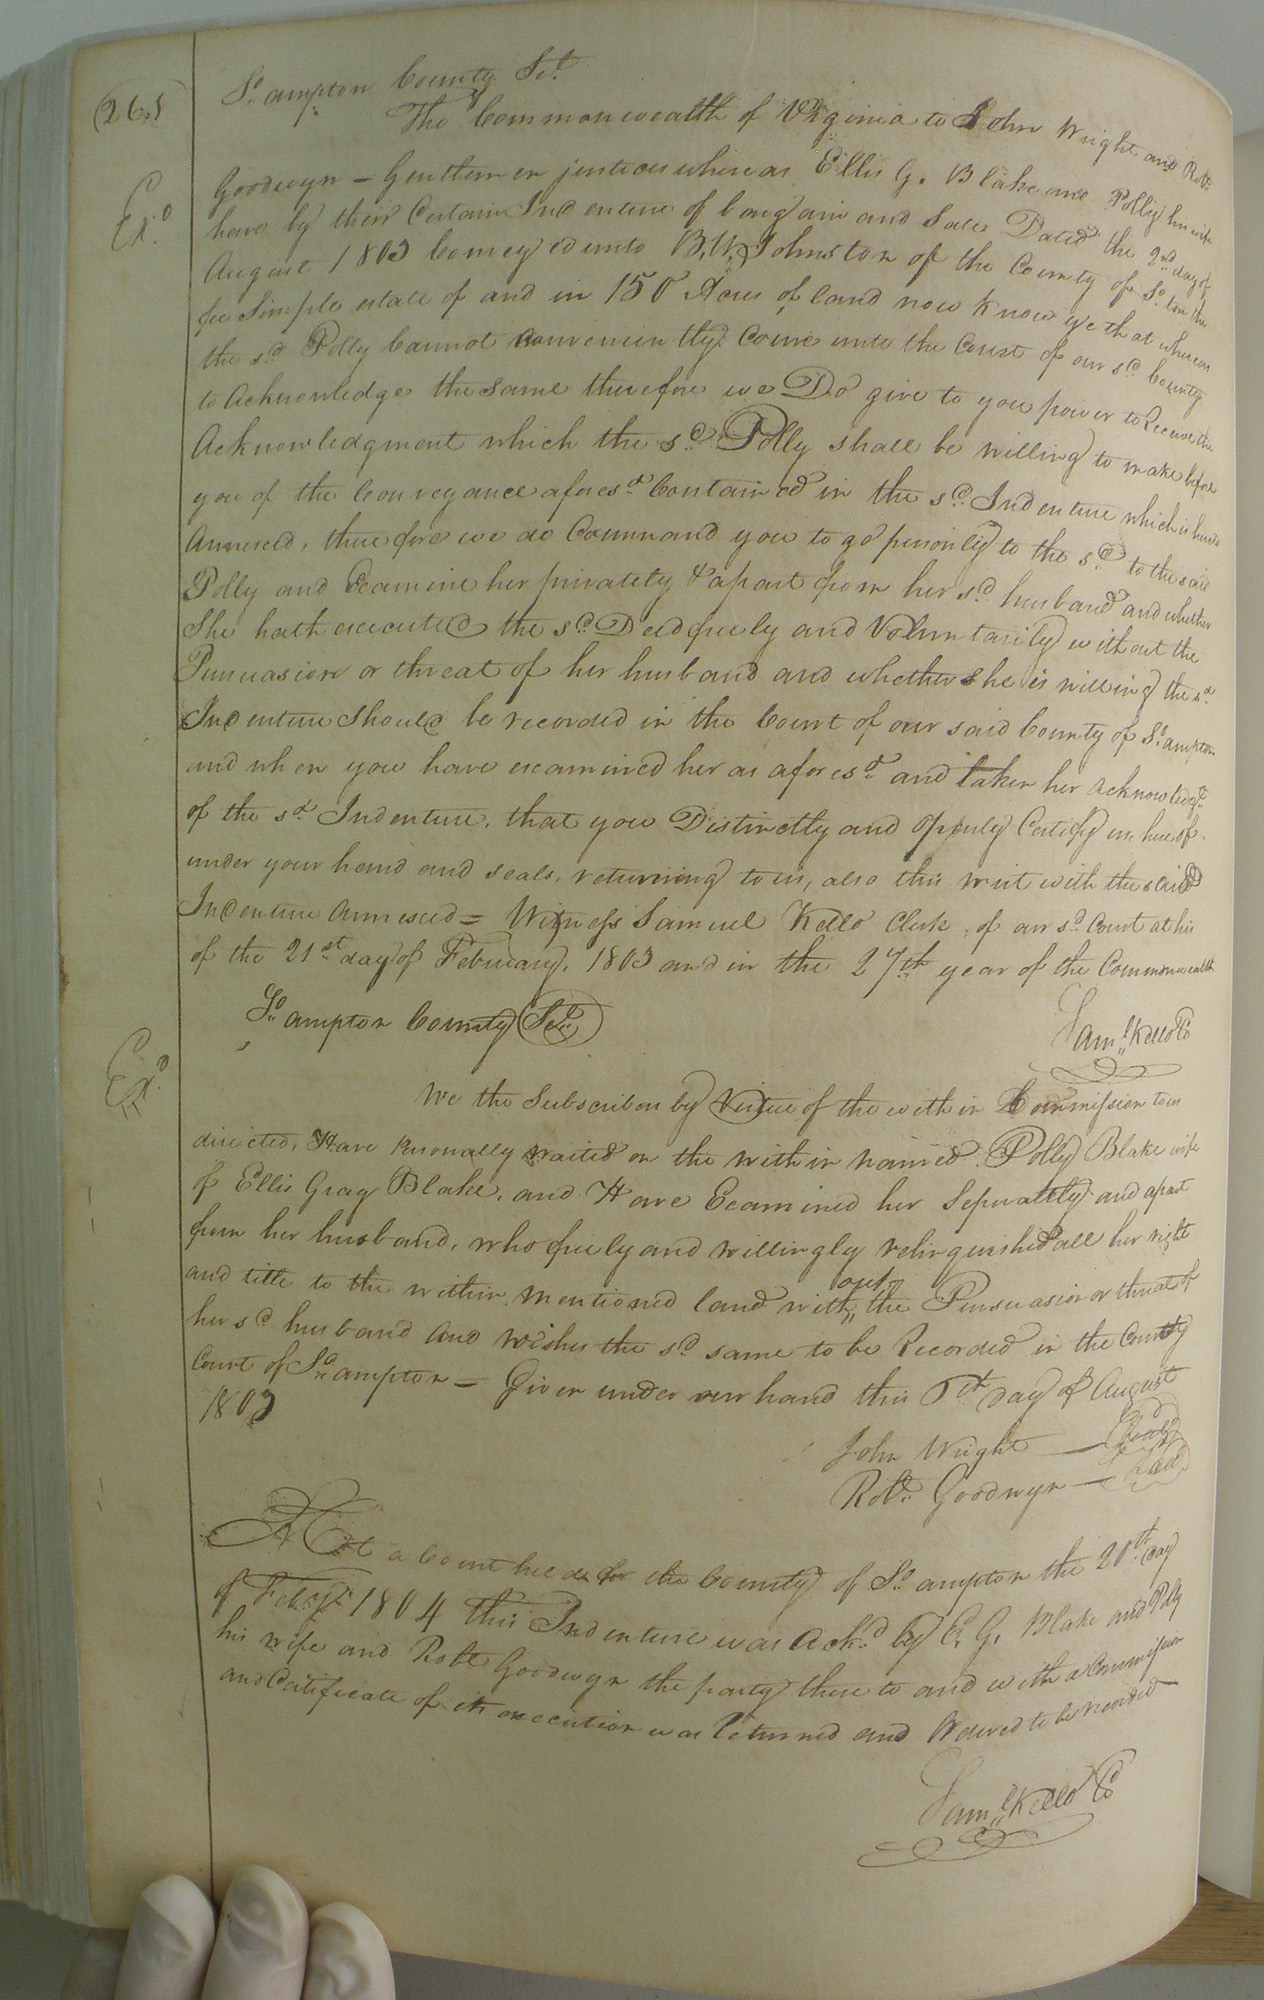 (265
So. ampton County Sct.
The Commonwealth of Virginia to John Wright and Robt.
Goodwyn – Gentlemen justices whereas Ellis G. Blake and Polly his wife
Exd.
have by their Certain Indenture of bargain and Sale Dated the 2nd day of
August 1803 Conveyed unto B. W. Johnston of the County of So. ton the
fee Simple estate of and in 150 Acres of land now know ye that whereas
the sd. Polly Cannot conveniently Come unto the Court of our sd. County
to Acknowledge the same therefore we Do give to you power to Receive the
Acknowledgment which the sd. Polly shall be willing to make before
you of the Conveyance aforesd. Contained in the sd. Indenture which is hereto
Annexed, therefore we do Command you to go personly to the sd. to the said
Polly and Examine her privately & apart from her sd. husband and whether
She hath executed the sd. Deed freely and Voluntarily without the
Pursuasion or threat of her husband and whether she is willing the sd.
Indenture should be recorded in the Court of our said County of So. ampton
and when you have examined her as aforesd. and taken her Acknowledgt.
of the sd. Indenture, that you Distinctly and Openly Certify us hereof
under your hand and seals, returning to us, also this writ with the said
Indenture Annexed = Witness Samuel Kello Clerk of our sd. Court at his
of the 21st day of February, 1803 and in the 27th year of the Commonwealth
So. ampton County Sct.
Saml. Kello CC
Exd.
We the Subscribers by Virtue of the within Commission to us
directed, Have personally waited on the within named Polly Blake wife
of Ellis Gray Blake, and Have Examined her Seperately and apart
from her husband, who freely and willingly relinquished all her right
and title to the within mentioned land with out the Pursuasion or threats of
her sd. husband and wishes the sd. same to be Recorded in the County
Court of So. ampton – Given under our hand this 5th day of August
1803
John Wright — Seal
Robt. Goodwyn — Seal
At a Court held for the County of So. ampton the 20th day
of Feby. 1804 this Indenture was Ackd. by E. G. Blake and Polly
his wife and Robt Goodwyn the party there to and with a Commission
and Certificate of its execution was Returned and Ordered to be recorded —
Saml. Kello CC